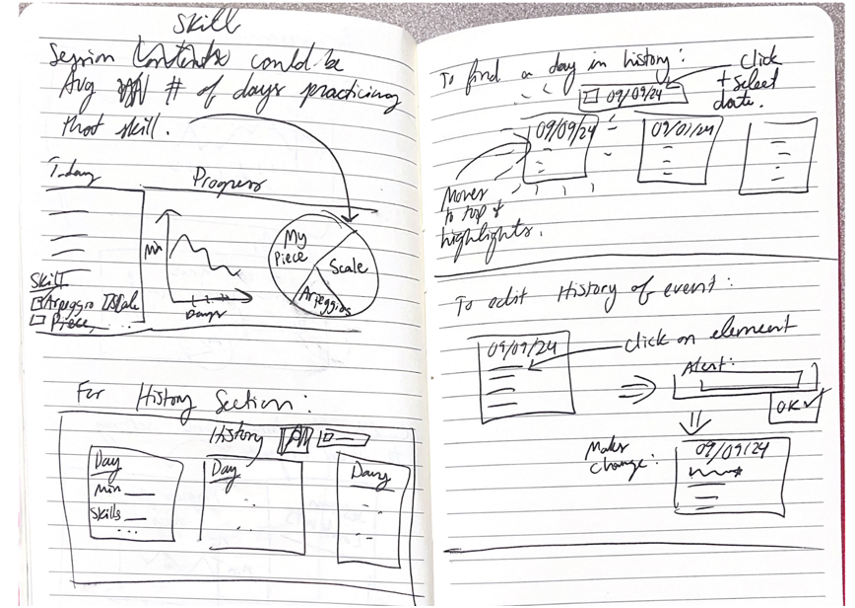 Skill
Session Contents could be
Avg # of days practicing
that skill.
Today
Progress
Min
Days
My
Piece
Scale
Arpeggios
Skill
Arpeggio Scale
Piece, ...
For History Section:
History
Day
Min
Skills
...
Day
Day
To find a day in history:
09/09/24
click
+ select
date.
09/09/24
09/01/24
Moves
to top &
highlights.
To edit History of event:
09/09/24
click on element
Alert:
OK ✓
Makes
change:
09/09/24